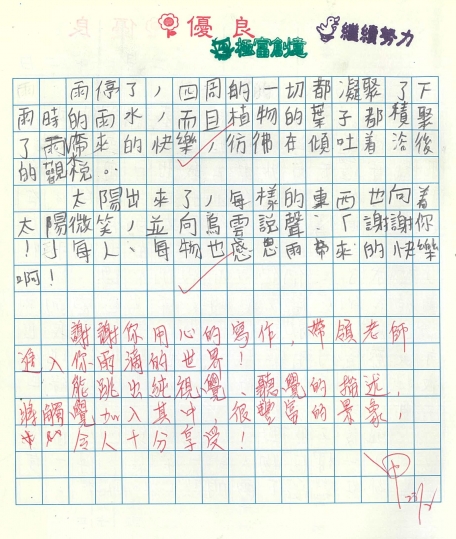 優良
極富創意
繼續努力
雨停了，四周的一切都凝聚了下
雨時的雨水，而且植物的葉子都積聚
了雨帶來的快樂，彷彿在傾吐着浴後
的觀悅。
太陽出來了，每樣的東西也向着
太陽微笑，並向烏雲說聲：「謝謝你
！」每人、每物也感恩雨帶來的快樂
啊！
謝謝你用心的寫作，帶領老師
進入你雨滴的世界！
能跳出純視覺、聽覺的描述，
將觸覺加入其中，很豐富的景象，
令人十分享受！